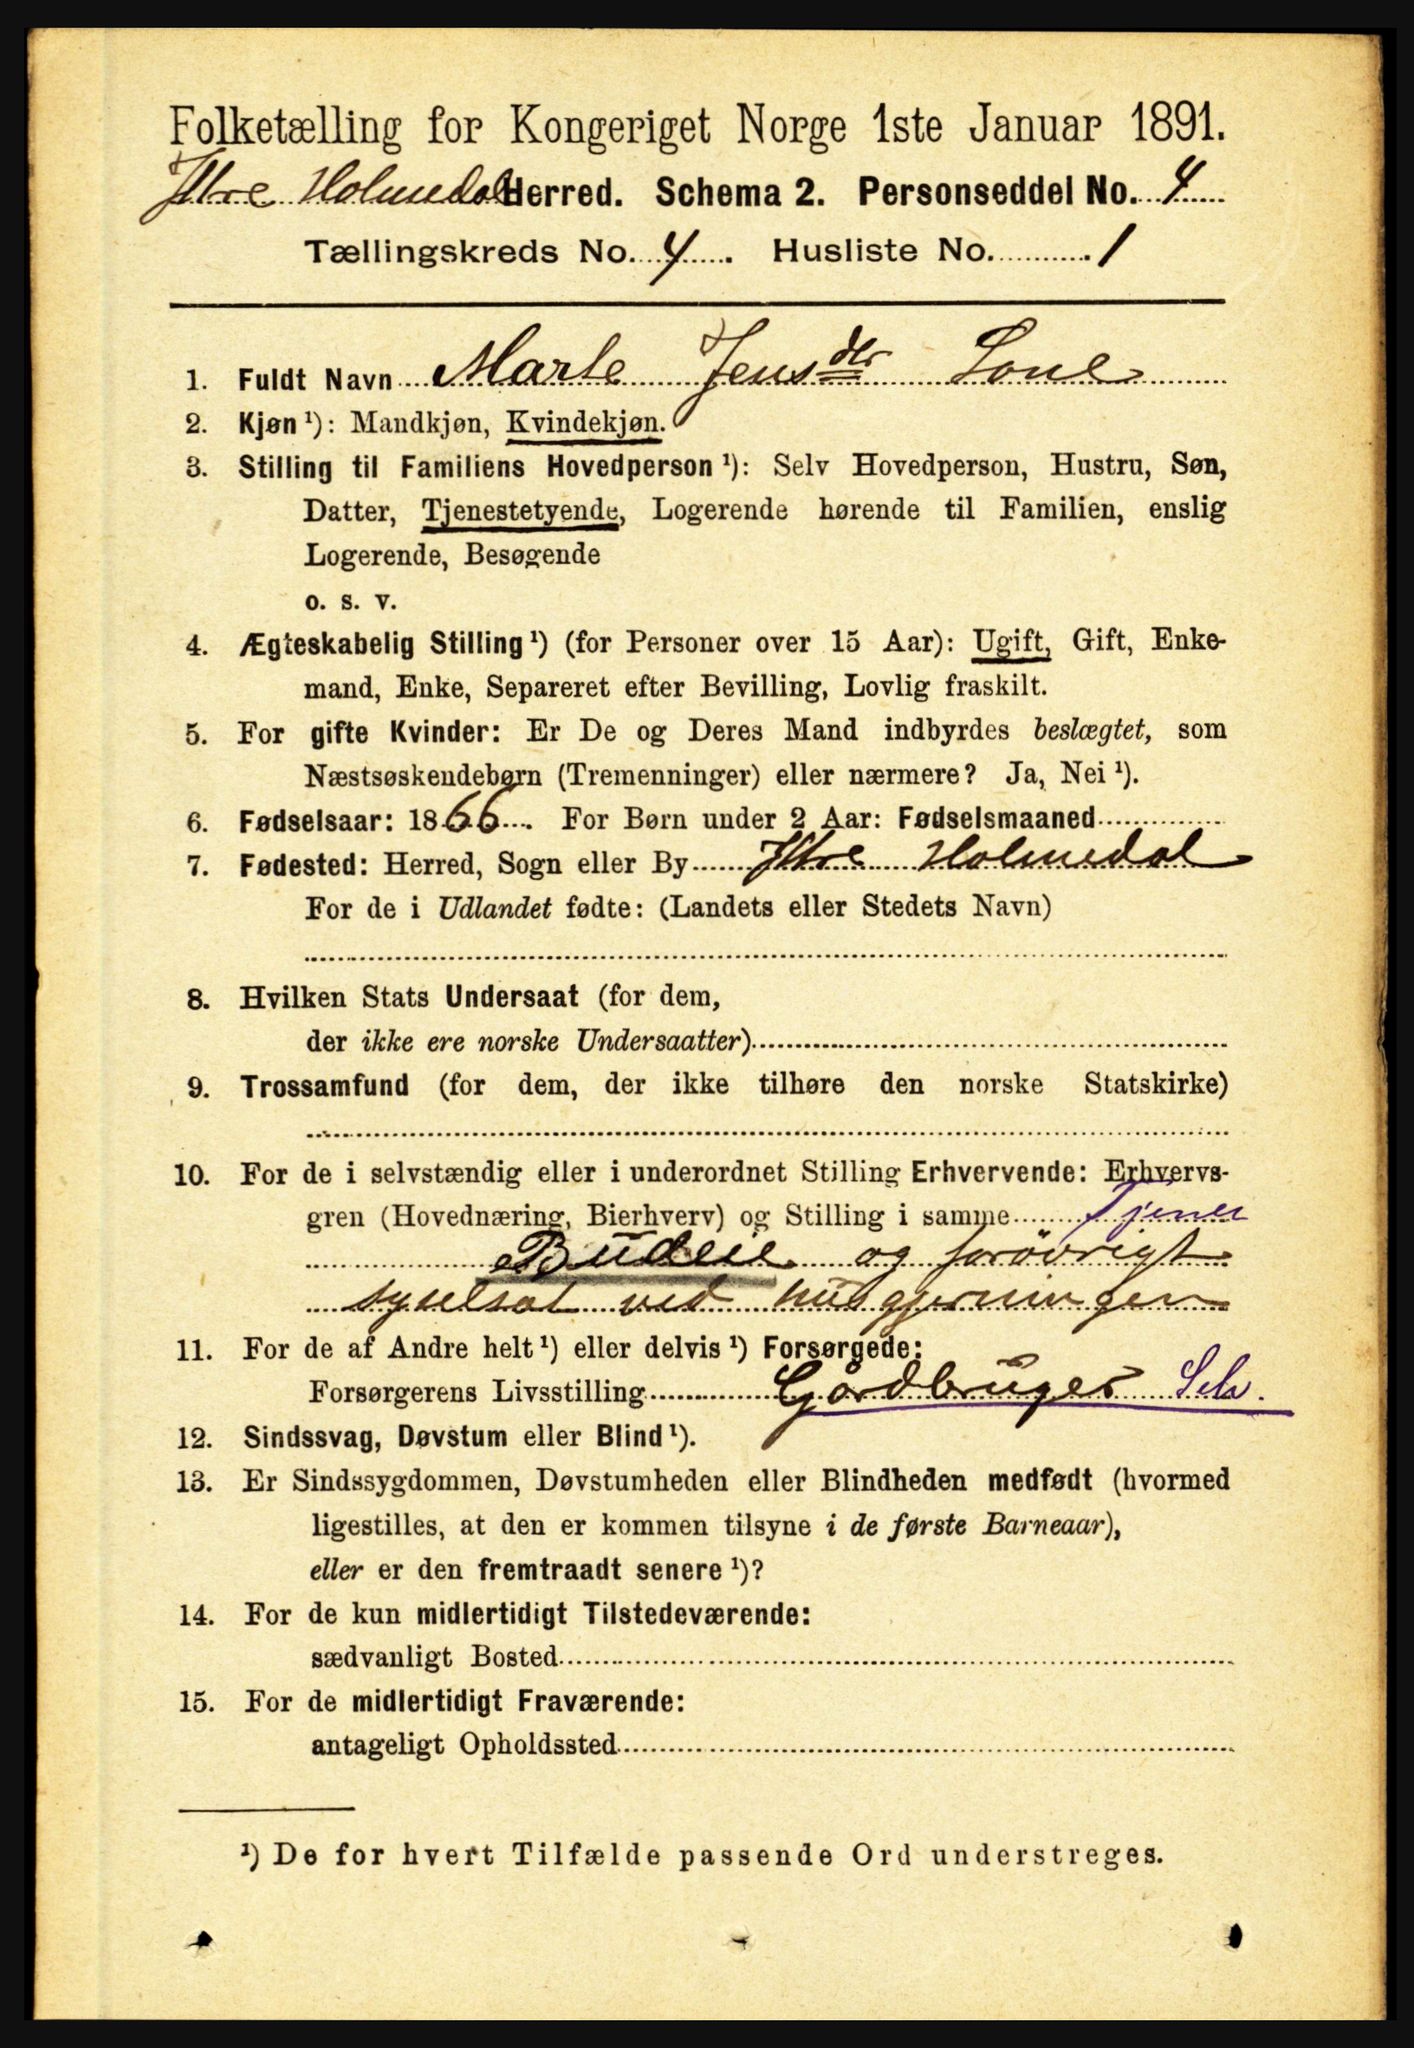 Folketælling for Kongeriget Norge 1ste Januar 1891.
Ytre Holmedal Herred. Schema 2. Personseddel No. 4
Tællingskreds No. 4. Husliste No. 1
1. Fuldt Navn Marte Jensdtr Sone
2. Kjøn ¹): Mandkjøn, Kvindekjøn.
3. Stilling til Familiens Hovedperson ¹): Selv Hovedperson, Hustru, Søn,
Datter, Tjenestetyende, Logerende hørende til Familien, enslig
Logerende, Besøgende
o. s. v.
4. Ægteskabelig Stilling ¹) (for Personer over 15 Aar): Ugift, Gift, Enke-
mand, Enke, Separeret efter Bevilling, Lovlig fraskilt.
5. For gifte Kvinder: Er De og Deres Mand indbyrdes beslægtet, som
Næstsøskendebørn (Tremenninger) eller nærmere? Ja, Nei ¹).
6. Fødselsaar: 1866. For Børn under 2 Aar: Fødselsmaaned
7. Fødested: Herred, Sogn eller By Ytre Holmedal
For de i Udlandet fødte: (Landets eller Stedets Navn)
8. Hvilken Stats Undersaat (for dem,
der ikke ere norske Undersaatter)
9. Trossamfund (for dem, der ikke tilhøre den norske Statskirke)
10. For de i selvstændig eller i underordnet Stilling Erhvervende: Erhvervs-
gren (Hovednæring, Bierhverv) og Stilling i samme Tjener
Budeie og forøvrigt
sysselsat ved husgjerningen
11. For de af Andre helt ¹) eller delvis ¹) Forsørgede:
Forsørgerens Livsstilling Gårdbruger Selv.
12. Sindssvag, Døvstum eller Blind ¹).
13. Er Sindssygdommen, Døvstumheden eller Blindheden medfødt (hvormed
ligestilles, at den er kommen tilsyne i de første Barneaar),
eller er den fremtraadt senere ¹)?
14. For de kun midlertidigt Tilstedeværende:
sædvanligt Bosted
15. For de midlertidigt Fraværende:
antageligt Opholdssted
¹) De for hvert Tilfælde passende Ord understreges.